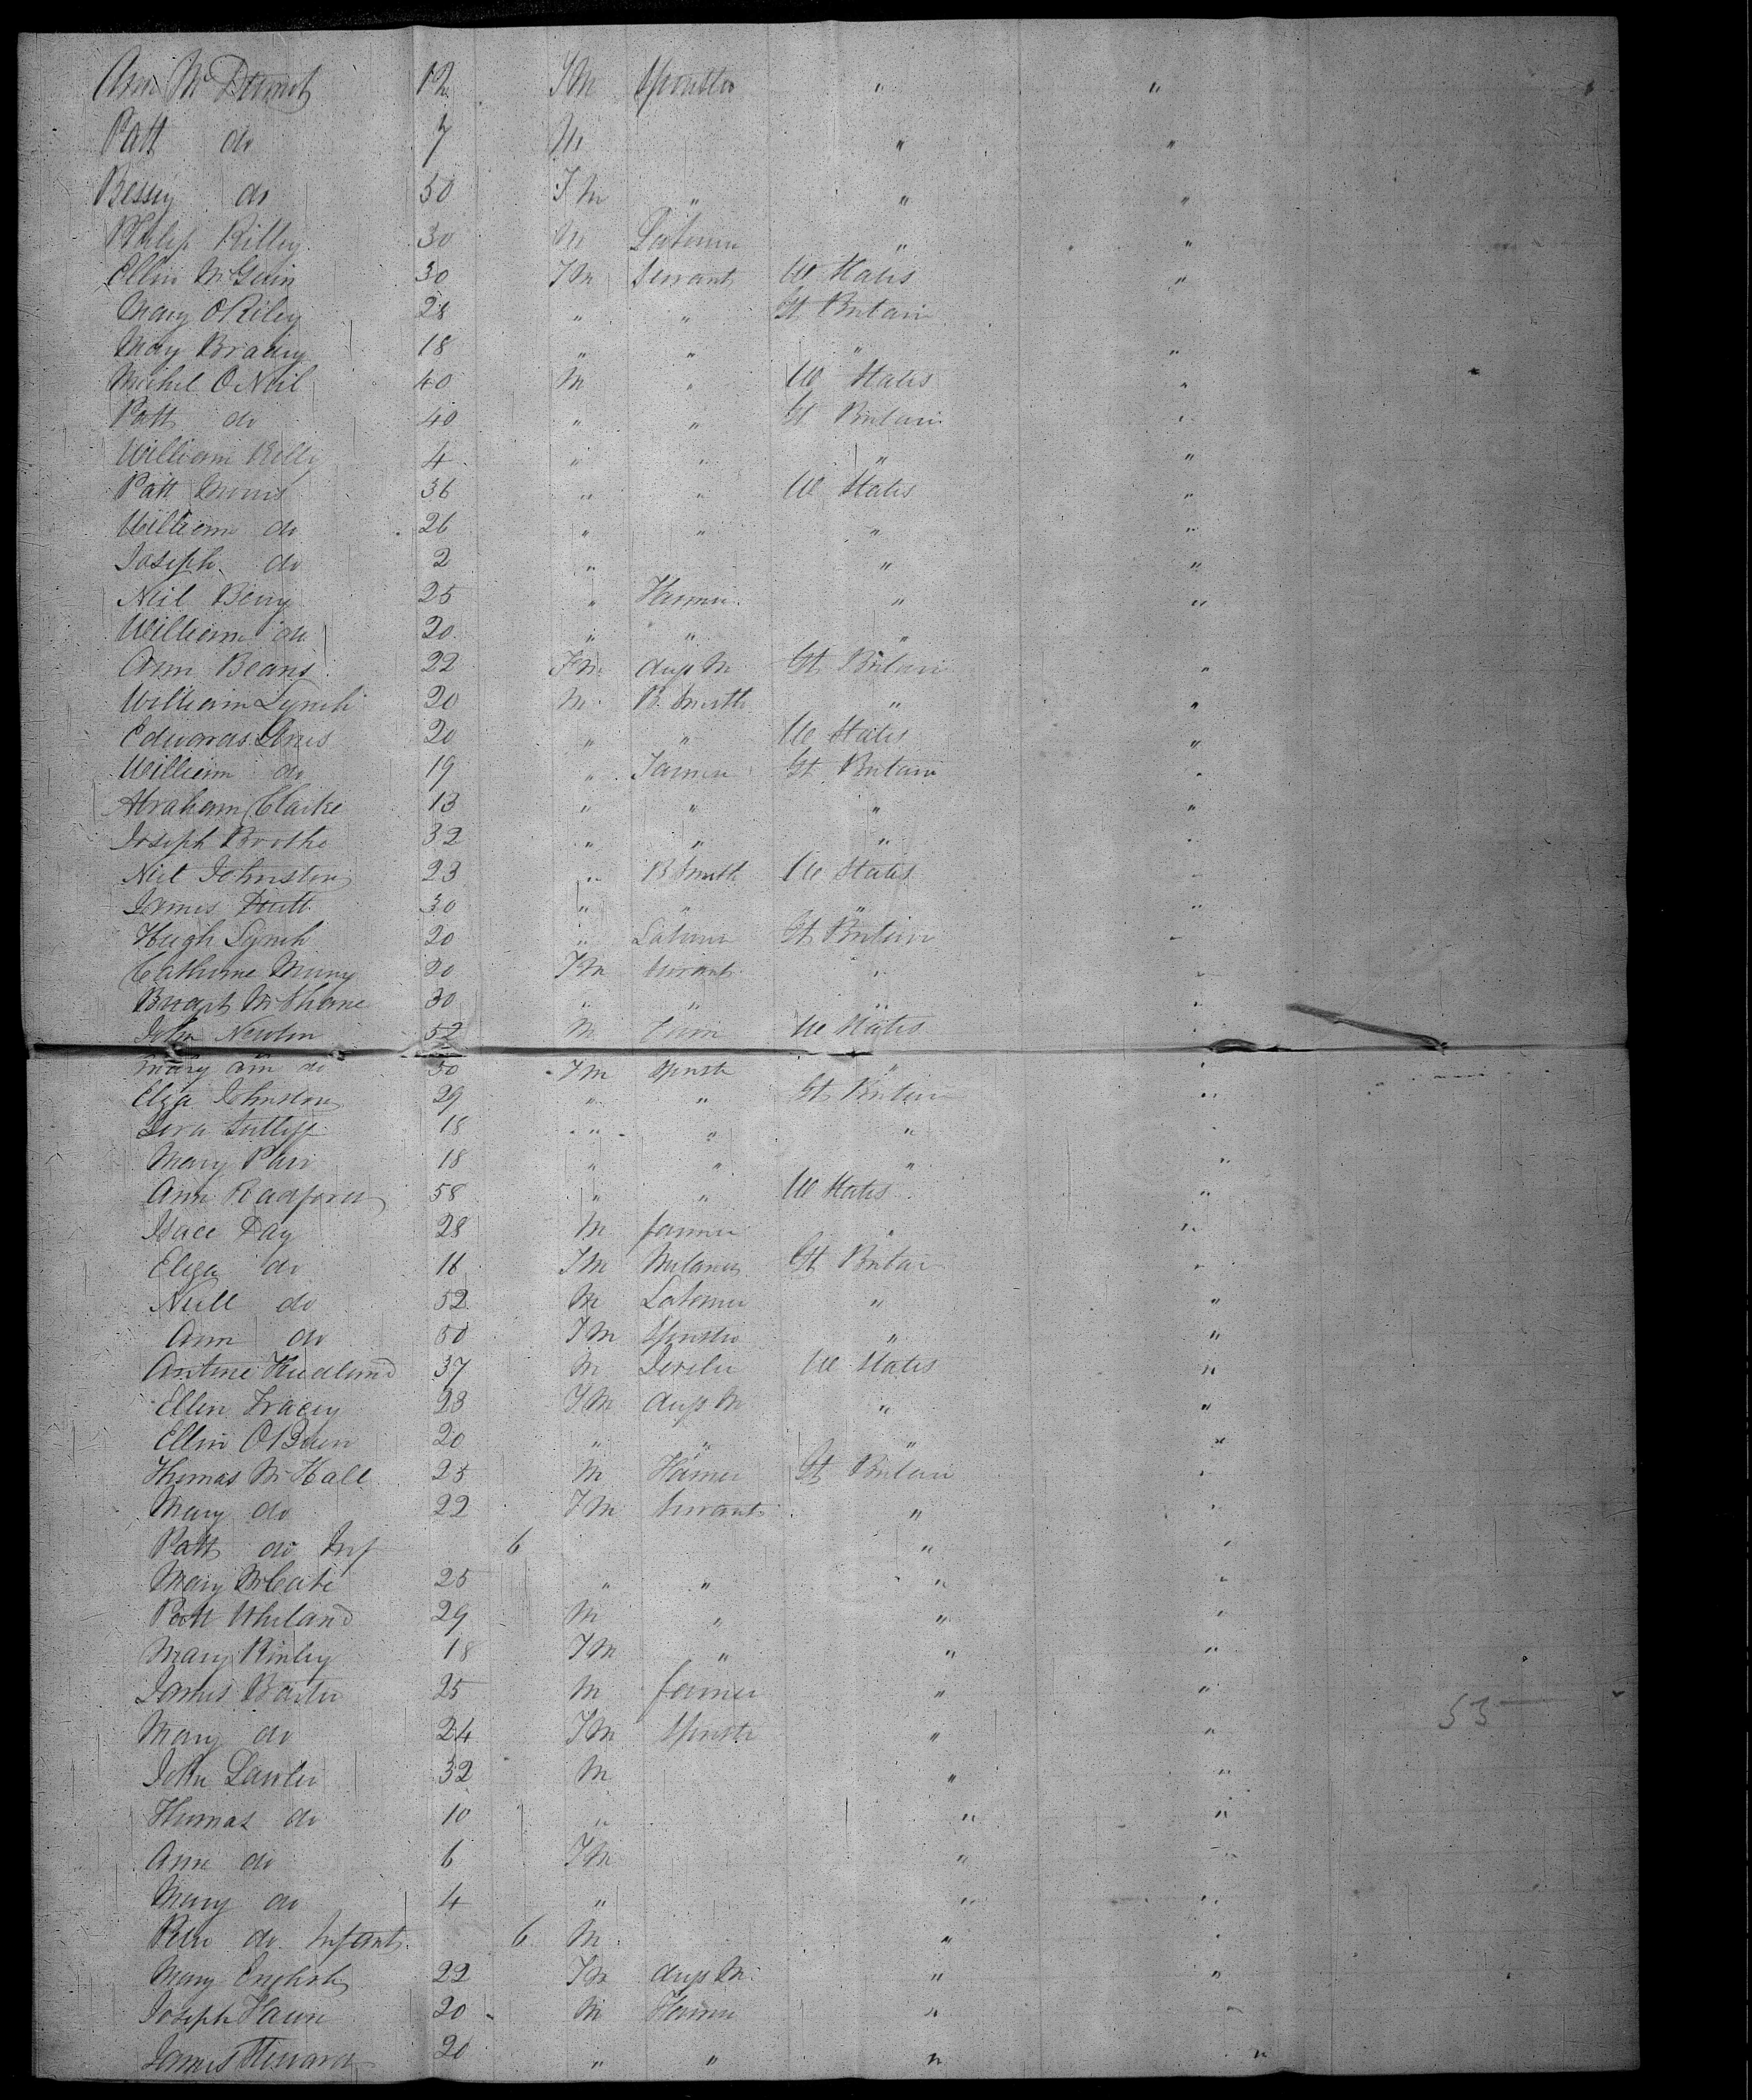 Ann McDermot 12 Fm Spinster " "
Patt do 7 M " "
Bessy do 50 Fm " " "
Philip Rilley 30 M Laborer " "
Ellin McGuin 30 Fm Servant U States "
Mary O Riley 28 " " Gt Britain
May Brady 18 " " " "
Michel O Neil 40 M " U States "
Patt do 40 " " Gt Britain "
William Kelly 4 " " " "
Patt 36 " " U States "
William do 26 " " " "
Joseph do 2 " " "
Neil Berry 25 " Farmer " "
William do 20 " " "
Ann Beans 22 Fm Gt Britain "
William Lynch 20 M B. Smith " "
Edward 20 " " U States "
William do 19 " Farmer Gt Britain "
Abraham Clarke 13 " " " "
Joseph Booths 32 " " " "
Niel Johnston 23 " B Smith U States "
James 30 " " " "
Hugh Lynch 20 " Laborer Gt Britain "
Catherine 20 Fm Servant " "
McShane 30 " " " "
John Newton 52 M U States "
Mary Ann do 50 Fm Spinster " "
Elza Johnston 29 " " Gt Britain "
Sutliff 18 " " "
Mary Parr 18 " " " "
Ann Radford 58 " " U States "
Isace Day 28 M farmer " "
Eliza do 16 Fm Gt Britain "
Neill do 52 M Laborer " "
Ann do 50 Fm Spinster " "
37 M U States "
Ellen Tracey 23 Fm " "
Ellin OBrien 20 " " " "
Thomas McHale 25 M Farmer Gt Britain "
Mary do 22 Fm Servant " "
Patt do Inf 6 " "
Mary McCabe 25 " " " "
Patt Wheland 29 M " " "
Mary 18 Fm " " "
James 25 M farmer " "
Mary do 24 Fm Spinster " " 53
John Lawler 32 M " "
Thomas do 10 " " "
Ann do 6 Fm " "
Mary do 4 " " "
Peter do Infant 6 M " "
Mary English 22 Fm " "
Joseph 20 M Farmer " "
James 20 " " " "